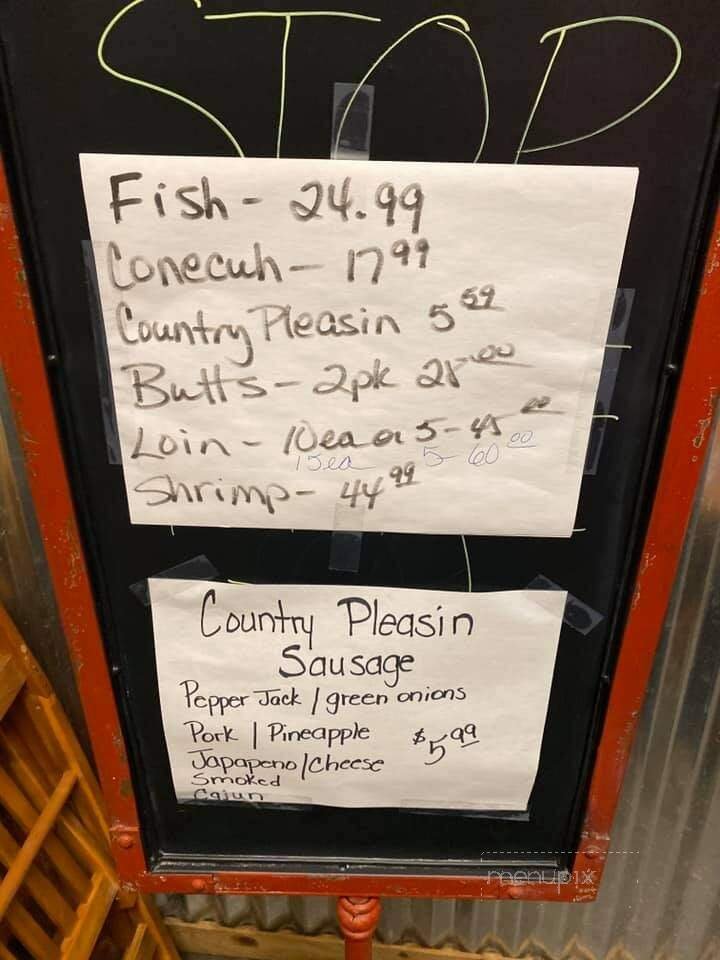 STOP
Fish - 24.99
Conecuh - 17 99
Country Pleasin 5 59
Butts - 2pk 25.00
Loin - 10ea or 5 - 45 00
15ea 5 - 60 00
Shrimp - 44 99
Country Pleasin
Sausage
Pepper Jack / green onions
Pork | Pineapple $5.99
Japapeno/Cheese
Smoked
Cajun
menupix